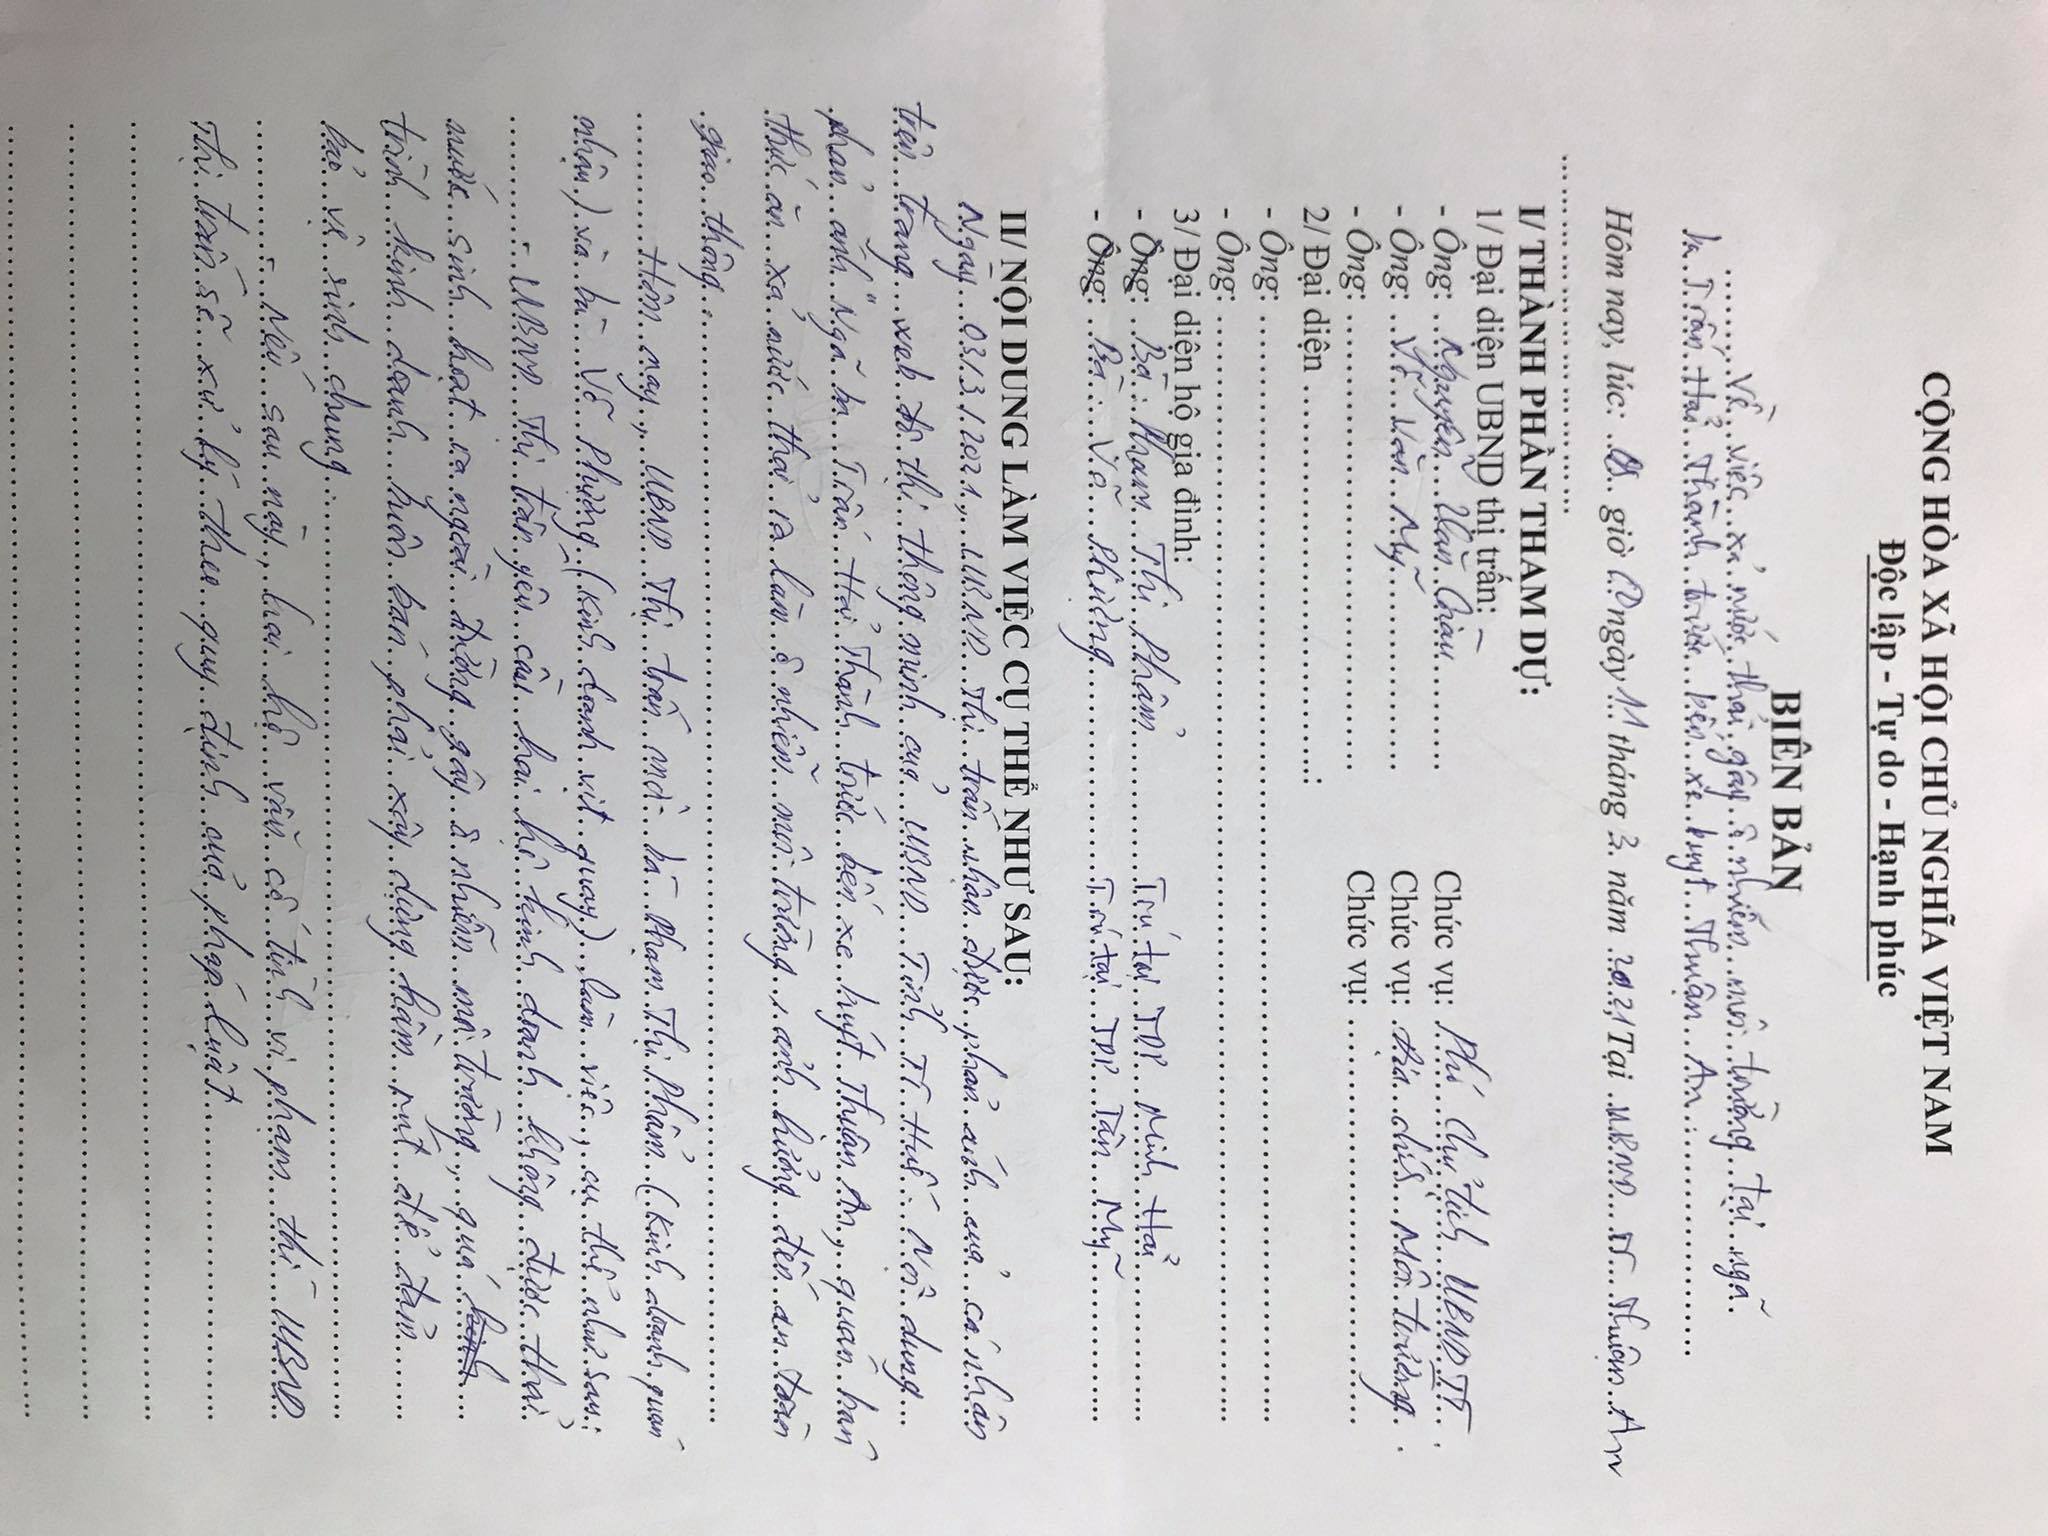 CỘNG HÒA XÃ HỘI CHỦ NGHĨA VIỆT NAM
Độc lập - Tự do - Hạnh phúc
BIÊN BẢN
Về việc xả nước thải gây ô nhiễm môi trường tại ngã
ba Trấn Hải Thành trước bến xe buýt Thuận An
Hôm nay, lúc: 08 giờ ngày 11 tháng 3 năm 2021 Tại UBND TT Thuận An
I/ THÀNH PHẦN THAM DỰ:
1/ Đại diện UBND thị trấn:
- Ông: Nguyễn Văn Chiến Chức vụ: Phó Chủ tịch UBND TT.
- Ông: Võ Văn Mỹ Chức vụ: Địa chính Môi trường.
- Ông: Chức vụ:
2/ Đại diện
- Ông:
- Ông:
3/ Đại diện hộ gia đình:
- Ông: Bà: Phạm Thị Phẩm Trú tại TDP Minh Hải
- Ông: Bà: Võ Phượng Trú tại TDP Tân Mỹ
II/ NỘI DUNG LÀM VIỆC CỤ THỂ NHƯ SAU:
Ngày 03/3/2021, UBND Thị trấn nhận được phản ánh của cá nhân
trên trang web đô thị thông minh của UBND Tỉnh TT Huế. Nội dung
phản ánh "Ngã ba Trấn Hải Thành trước bến xe buýt Thuận An, quán bán
thức ăn xả nước thải ra làm ô nhiễm môi trường, ảnh hưởng đến an toàn
giao thông.
Hôm nay, UBND Thị trấn mời bà Phạm Thị Phẩm (Kinh doanh quán
nhậu) và bà Võ Phượng (Kinh doanh vịt quay) làm việc, cụ thể như sau:
- UBND Thị trấn yêu cầu hai hộ kinh doanh không được thải
nước sinh hoạt ra ngoài đường gây ô nhiễm môi trường, quá kinh
trình kinh doanh buôn bán phải xây dựng hầm rút để đảm
bảo vệ sinh chung.
- Nếu sau này, hai hộ vẫn cố tình vi phạm thì UBND
Thị trấn sẽ xử lý theo quy định của pháp luật